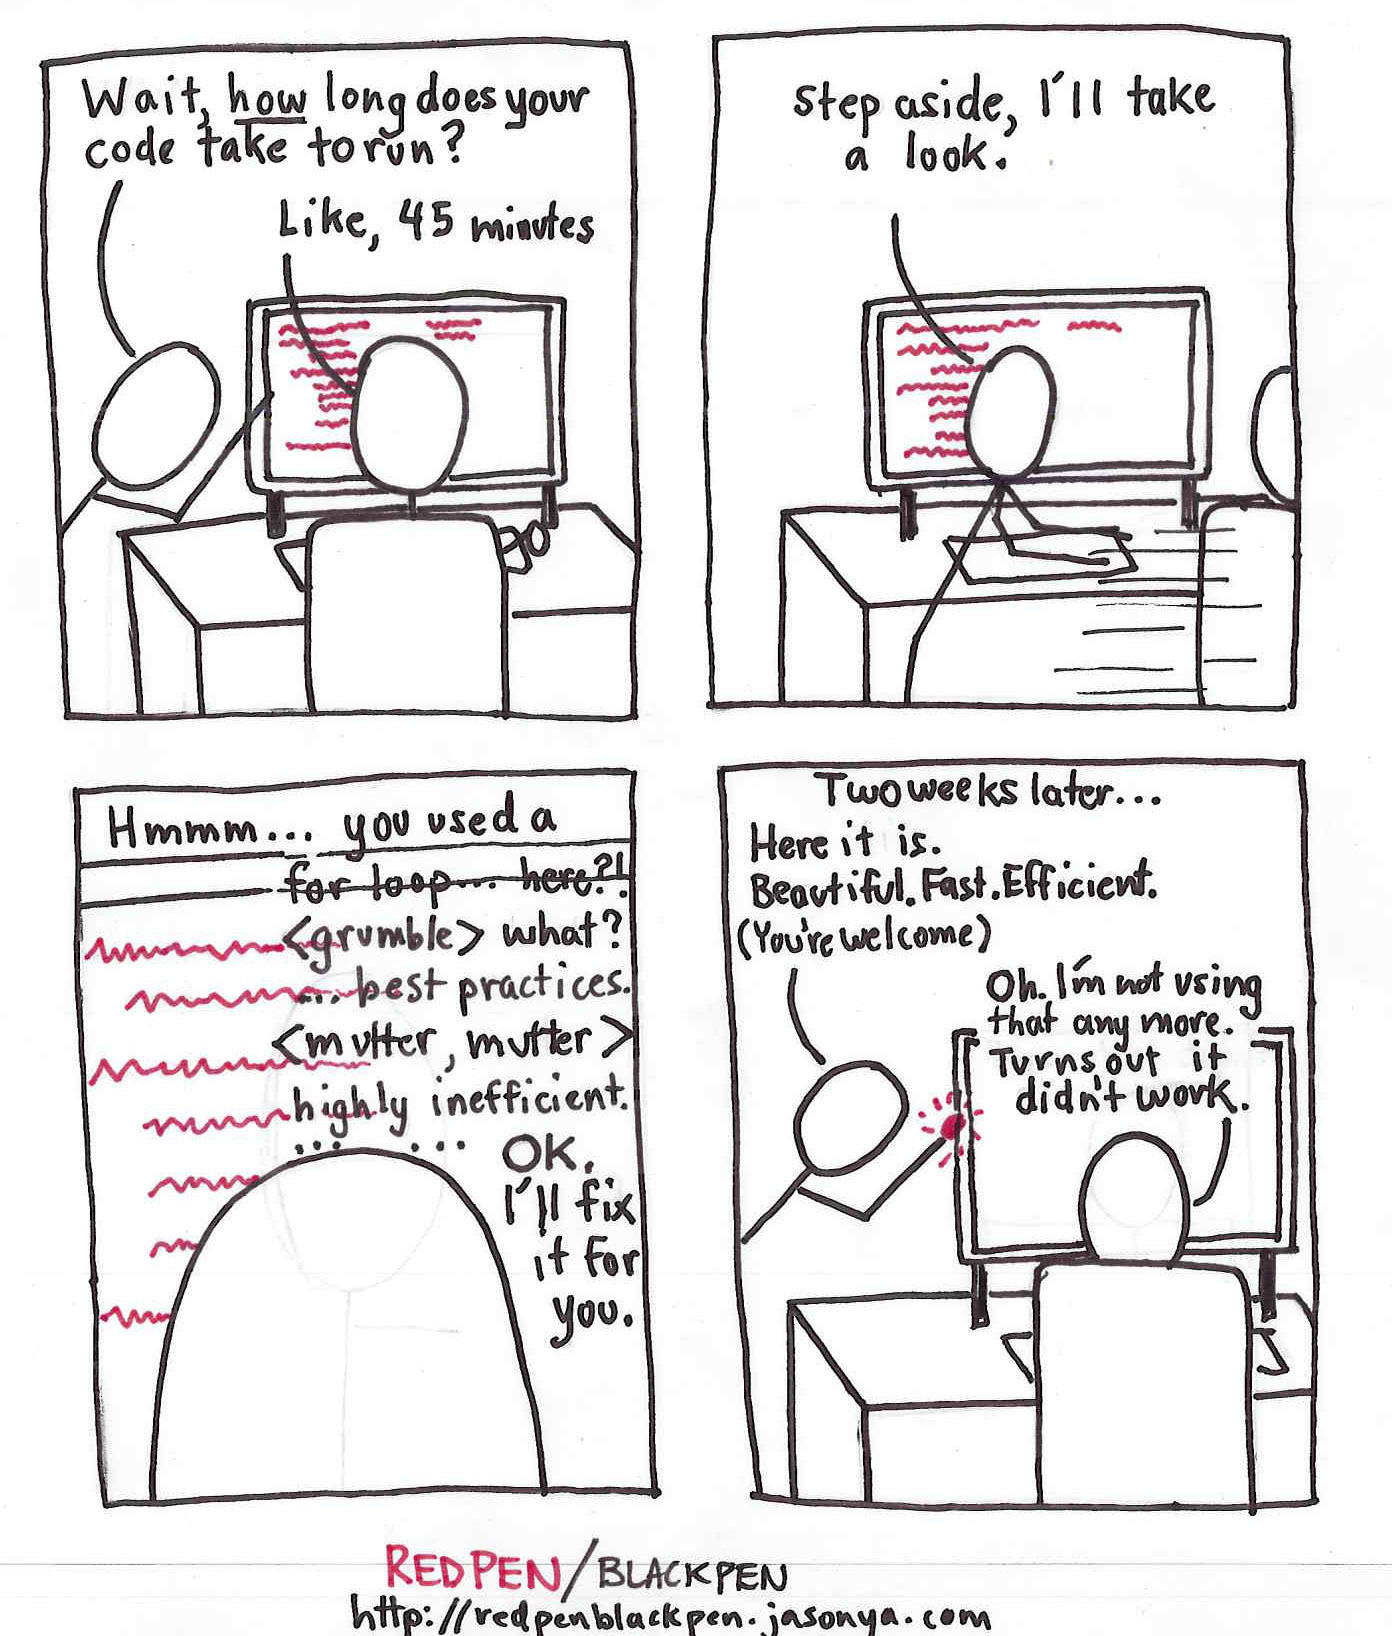 Wait, how long does your
code take to run?
Like, 45 minutes
Step aside, I'll take
a look.
Hmmm... you used a
for loop... here?!
<grumble> what?
... best practices.
<mutter, mutter>
highly inefficient.
... ...
OK.
I'll fix
it for
you.
Two weeks later...
Here it is.
Beautiful. Fast. Efficient.
(You're welcome)
Oh. I'm not using
that any more.
Turns out it
didn't work.
RED PEN/BLACK PEN
http://redpenblackpen.jasonya.com